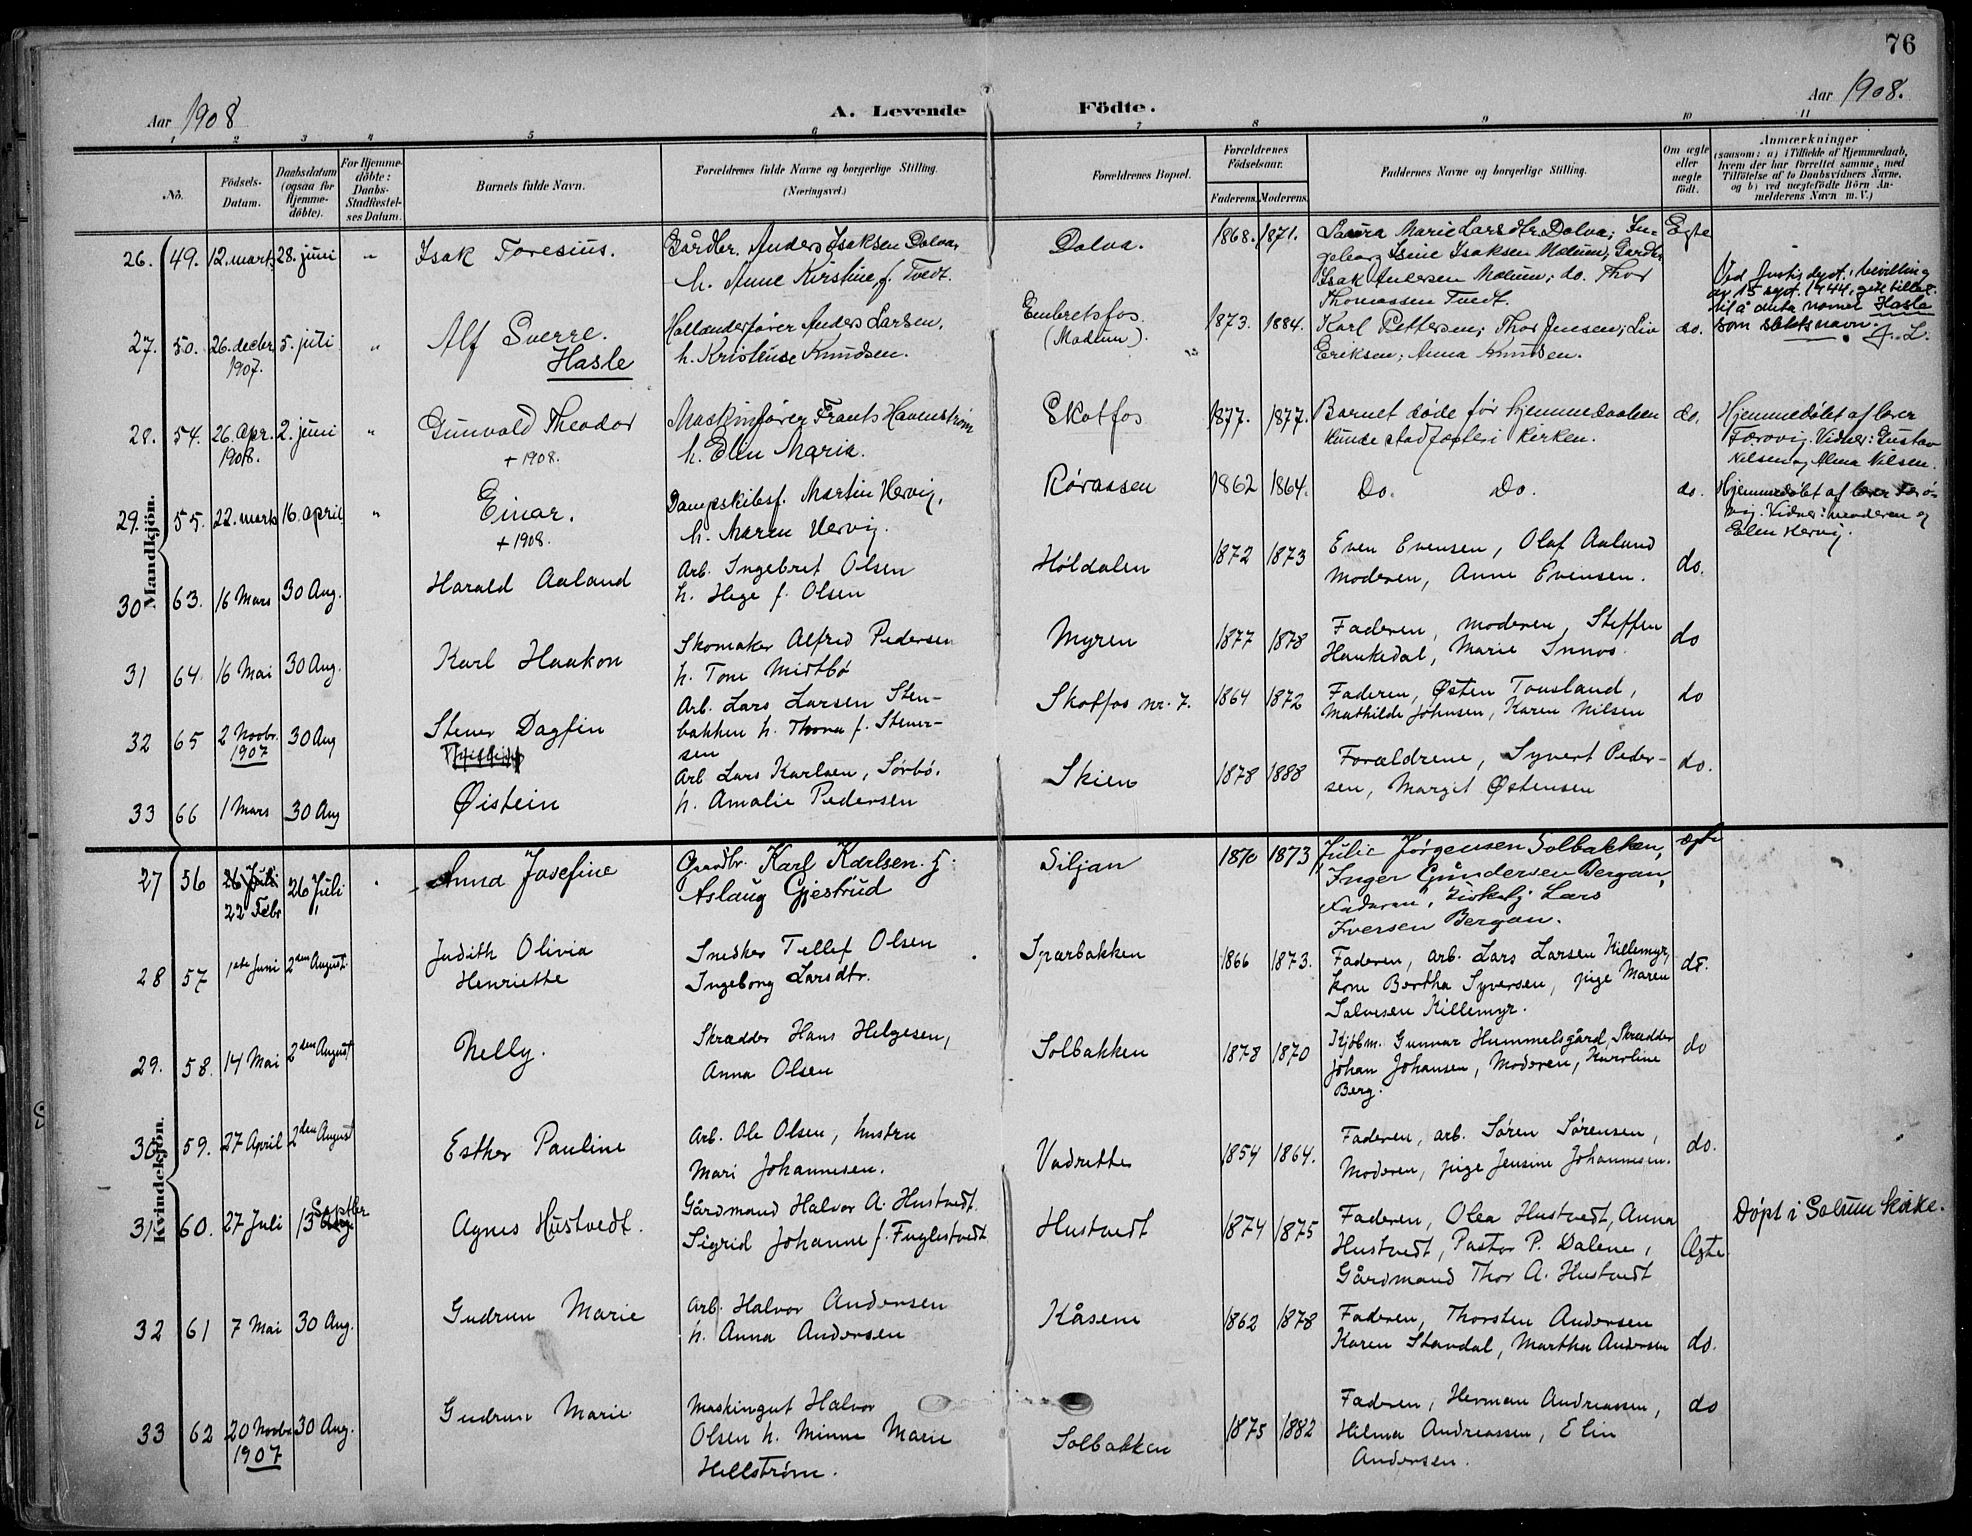 76
Aar 1908
A. Levende Födte.
Aar 1908.
1 2 3 4 5 6 7 8 9 10 11
No.
Födsels-Datum.
Daabsdatum (ogsaa for Hjemmedöbte).
For Hjemmedöbte: Daabs-Stadfæstelses Datum.
Barnets fulde Navn.
Forældrenes fulde Navne og borgerlige Stilling.
(Næringsvei.)
Forældrenes Bopæl.
Forældrenes Födselsaar.
Faderens. Moderens.
Faddernes Navne og borgerlige Stilling.
Om ægte eller uægte födt.
Anmærkninger
(saasom: a) i Tilfælde af Hjemmedaab, hvem der har forrettet samme, med Tilföielse af to Daabsvidners Navne, og b) ved uægtefödte Börn Anmelderens Navn m. V.)
Mandkjön.
26. 49. 12. marts 28. juni " Isak Foresius. Gårdbr. Anders Isaksen Dolva,
h. Anne Kirstine f. Tvedt. Dolva. 1868. 1871. Laura Marie Larsdtr. Dolva; In-
geborg Lsine Isaksen Mælum; Gardbr.
Isak Andersen Mælum; do. Thor
Thomassen Tvedt. Egte
27. 50. 26. decbr. 1907. 5. juli " Alf Sverre.
Hasle
Hollænderfører Anders Larsen,
h. Kristense Knudsen. Embretsfos.
(Modum). 1873. 1884. Karl Pettersen; Thor Jensen; Liv
Eriksen; Anna Knudsen. do.
Ved Justisdept.s bevilling
av 15 sept. 1944, gitt tillat.
til å anta navnet Hasle
som slektsnavn. J. L.
28. 54. 26. Apr. 1908. 2. juni " Gunvald Theodor
+ 1908.
Maskinfører Frants Havenstrøm
h. Elin Maria. Skotfos 1877. 1877. Barnet døde før hjemmedaaben
kunde stadfæstes i kirken. do.
Hjemmedøbt af lærer
Færøvig. Vidner: Gustav
Nilsen og Alma Nilsen.
29. 55. 22. marts 16. april " Einar.
+ 1908.
Dampskibsf. Martin Hervig,
h. Maren Hervig. Røraasen 1862 1864. Do. Do. do.
Hjemmedøbt af lærer Færø-
vig. Vidner: moderen og
Elen Hervig.
30 63. 16 Mars 30 Aug. Harald Aaland Arb. Ingebret Olsen
h. Hege f. Olsen Høldalen 1872 1873 Even Evensen, Olaf Aaland
Moderen, Anne Evensen. do.
31 64. 16 Mai 30 Aug. Karl Haakon Skomaker Alfred Pedersen
h. Tone Midtbø Myren 1877 1878 Faderen, Moderen, Steffen
Haukedal, Marie Innos. do
32 65 2 Novbr. 1907 30 Aug Stener Dagfin
Arb. Lars Larsen Sten-
bakken h. Thora f. Stener-
sen Skotfos nr. 7. 1864 1872 Faderen, Østen Tousland,
Mathilde Johnsen, Karen Nilsen do
33 66 1 Mars 30 Aug Øistein Arb Lars Karlsen, Sørbø.
h. Amalie Pedersen Skien 1878 1888 Forældrene, Syvert Peder-
sen, Margit Østensen do.
Kvindekjön.
27 56 26 Juli
22 Febr 26 Juli Anna Josefine Gaardbr. Karl Karlsen. h.
Aslaug Gjestrud Siljan 1870 1873 Julie Jørgensen Solbakken,
Inger Gundersen Bergan,
Faderen, Lars
Iversen Bergan. ægte
28 57 1ste Juni 2den August. Judith Olivia
Henriette Snedker Tellef Olsen
Ingeborg Larsdtr. Sparbakken 1866 1873. Faderen, arb. Lars Larsen Killemyr,
kone Bertha Syversen, pige Maren
Salvesen Killemyr. do.
29. 58. 14 Mai 2den August Nelly. Skrædder Hans Helgesen,
Anna Olsen Solbakken 1878 1870 Kjøbm. Gunnar Hummelsgård, Skrædder
Johan Johansen, Moderen, Karoline
Berg. do
30 59. 27 April 2den August Esther Pauline Arb. Ole Olsen, hustru
Mari Johannesen. Vadrette 1854 1864. Faderen, arb. Søren Sørensen,
Moderen, pige Jensine Johannesen. do.
31 60. 27 Juli 13 Septbr Agnes Hustvedt. Gårdmand Halvor A. Hustvedt.
Sigrid Johanne f. Fuglestvedt Hustvedt 1874 1875 Faderen, Olea Hustvedt, Anna
Hustvedt, Pastor P. Dalene,
Gårdmand Thor A. Hustvedt Ægte Døpt i Solum Kirke.
32 61 7 Mai 30 Aug. Gudrun Marie Arb. Halvor Andersen
h. Anna Andersen Kåsene 1862 1878 Faderen, Thorsten Andersen
Karen Standal, Martha Andersen do.
33 62 20 Novbr 1907 30 Aug. Gudrun Marie Maskingut Halvor
Olsen h. Minna Marie
Hellstrøm. Solbakken 1875 1882 Faderen, Herman Andreassen,
Hilma Andreassen, Elin
Andersen. do